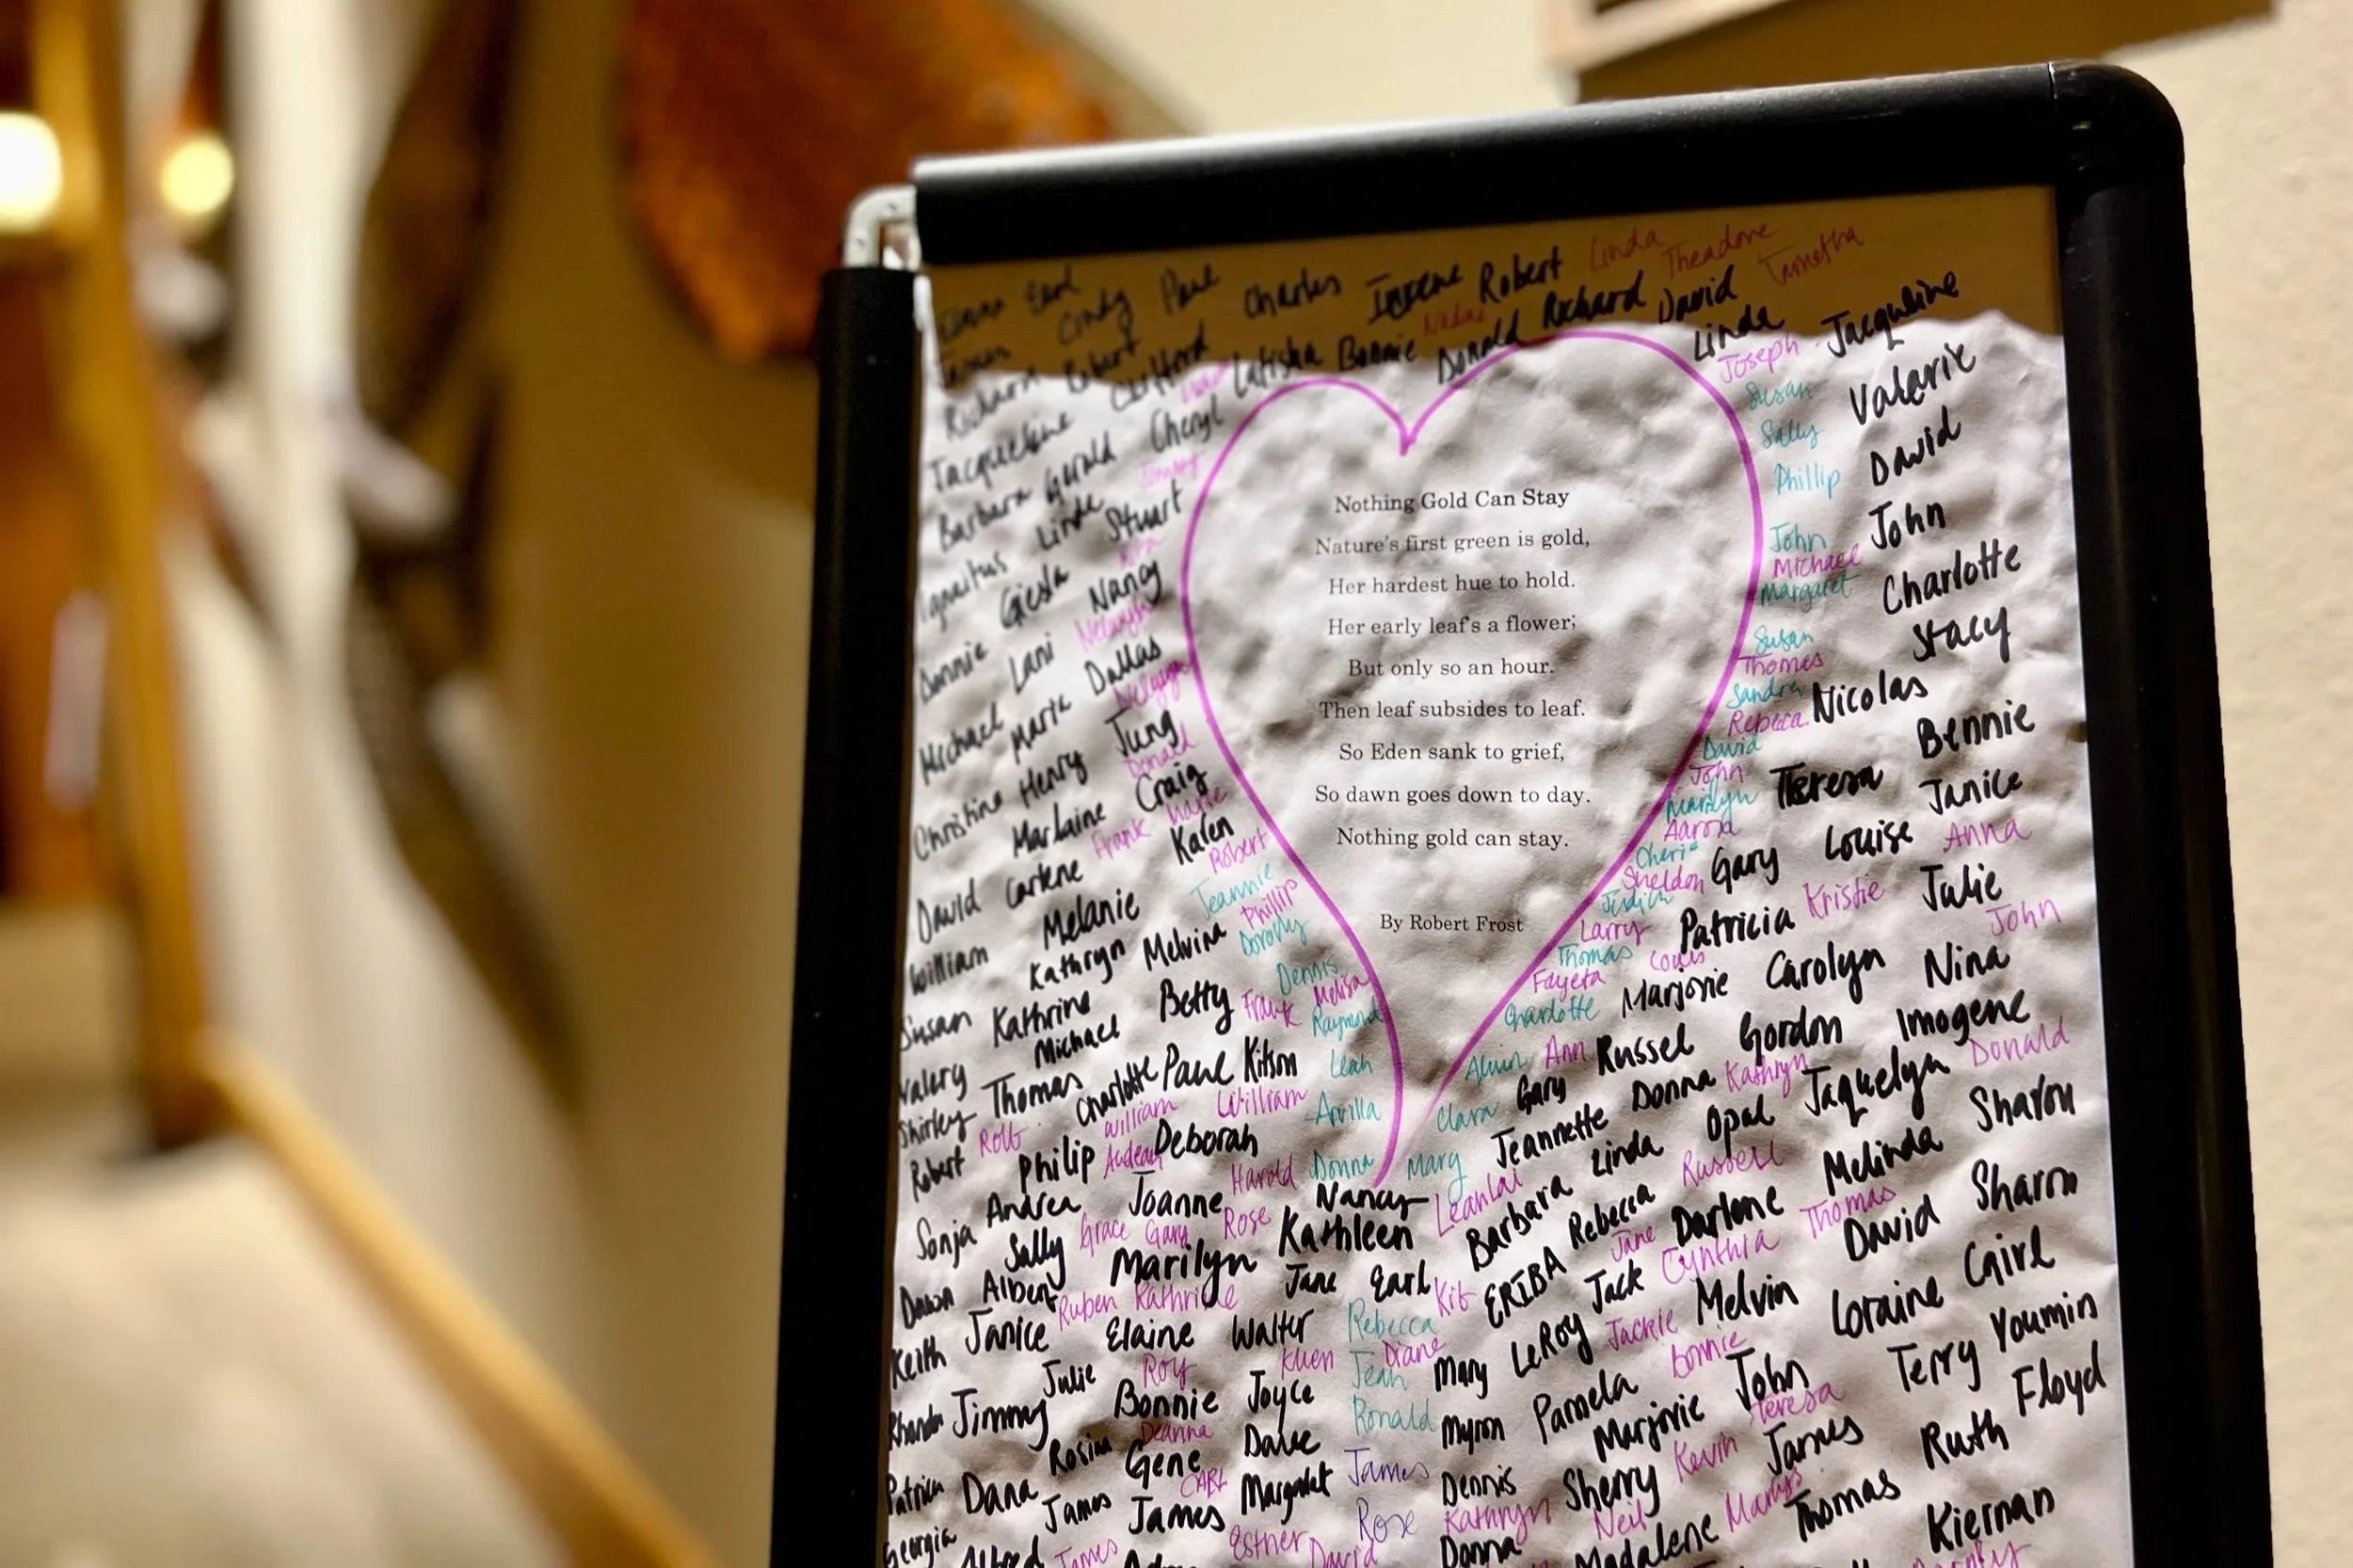 Earl
Cindy Paul Charles Irene Robert Linda Theadore
Richard Robert Clifford Latisha Bonnie Donald Richard David Tametha
Jacqueline Cheryl Linda Joseph Jacquline
Barbara Gerald Susan Valarie
Linda Stuart Sally David
Ignatius Giesla Nancy Phillip John
Lani Dallas John Michael Charlotte
Michael Maria Jung Margaret Stacy
Christine Henry Donald Susan Thomas
Marlaine Craig Sandra Nicolas
David Carlene Frank Karen Rebeca Bennie
Melanie Robert David John Teresa Janice
William Kathryn Melvina Jeannie Phillip Marilyn Aaron Gary Louise Anna
Susan Kathrine Betty Dorothy Cheri Sheldon Patricia Kristie Julie
Michael Frank Dennis Melisa Judith Larry John
Valery Thomas Charlotte Paul Kitson Raymond Thomas Louis Marjorie Carolyn Nina
Shirley William William Leah Fayeta Charlotte Russel Gordon Imogene
Robert Philip Deborah Arvilla Alvin Ann Gary Donna Kathryn Jaquelyn Donald
Andrea Joanne Harold Donna Clara Jeannette Linda Opal Sharon
Sonja Sally Grace Gary Rose Nancy Mary Barbara Rebecca Russell Melinda
Albert Marilyn Kathleen ERIBA Jane Darlene Thomas Sharon
Keith Janice Ruben Jane Earl Kit Jack Cynthia David
Elaine Walter Rebecca LeRoy Jackie Melvin Loraine
Jimmy Julie Roy Diane Mary Bonnie Terry Youmin
Bonnie Joyce Jean Pamela John Floyd
Rosina Deanna Dave Ronald Myron Marjorie Teresa
Dana Gene Margaret James Dennis Sherry Kevin James Ruth
Georgia James James CARL Rose Kathryn Neil Thomas
Alfred James Esther David Donna Madalene Kiernan
Nothing Gold Can Stay
Nature's first green is gold,
Her hardest hue to hold.
Her early leaf's a flower;
But only so an hour.
Then leaf subsides to leaf.
So Eden sank to grief,
So dawn goes down to day.
Nothing gold can stay.
By Robert Frost